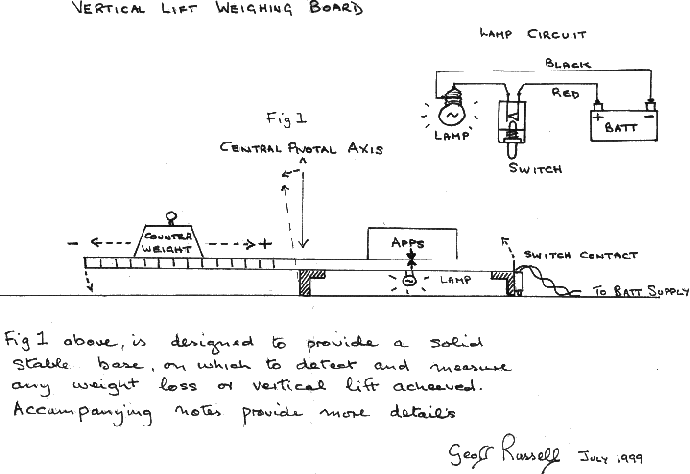 VERTICAL LIFT WEIGHING BOARD
LAMP CIRCUIT
BLACK
RED
+ BATT -
LAMP
SWITCH
Fig 1
CENTRAL PIVOTAL AXIS
COUNTER
WEIGHT
- +
APPS
LAMP
SWITCH CONTACT
TO BATT SUPPLY
Fig 1 above, is designed to provide a solid
stable base, on which to detect and measure
any weight loss or vertical lift acheeved.
Accompanying notes provide more details
Geoff Russell JULY 1999